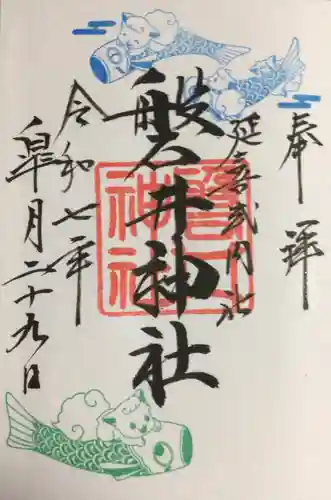 奉拝
延喜式内社
磐井神社
令和七年
皐月二十九日
磐井神社